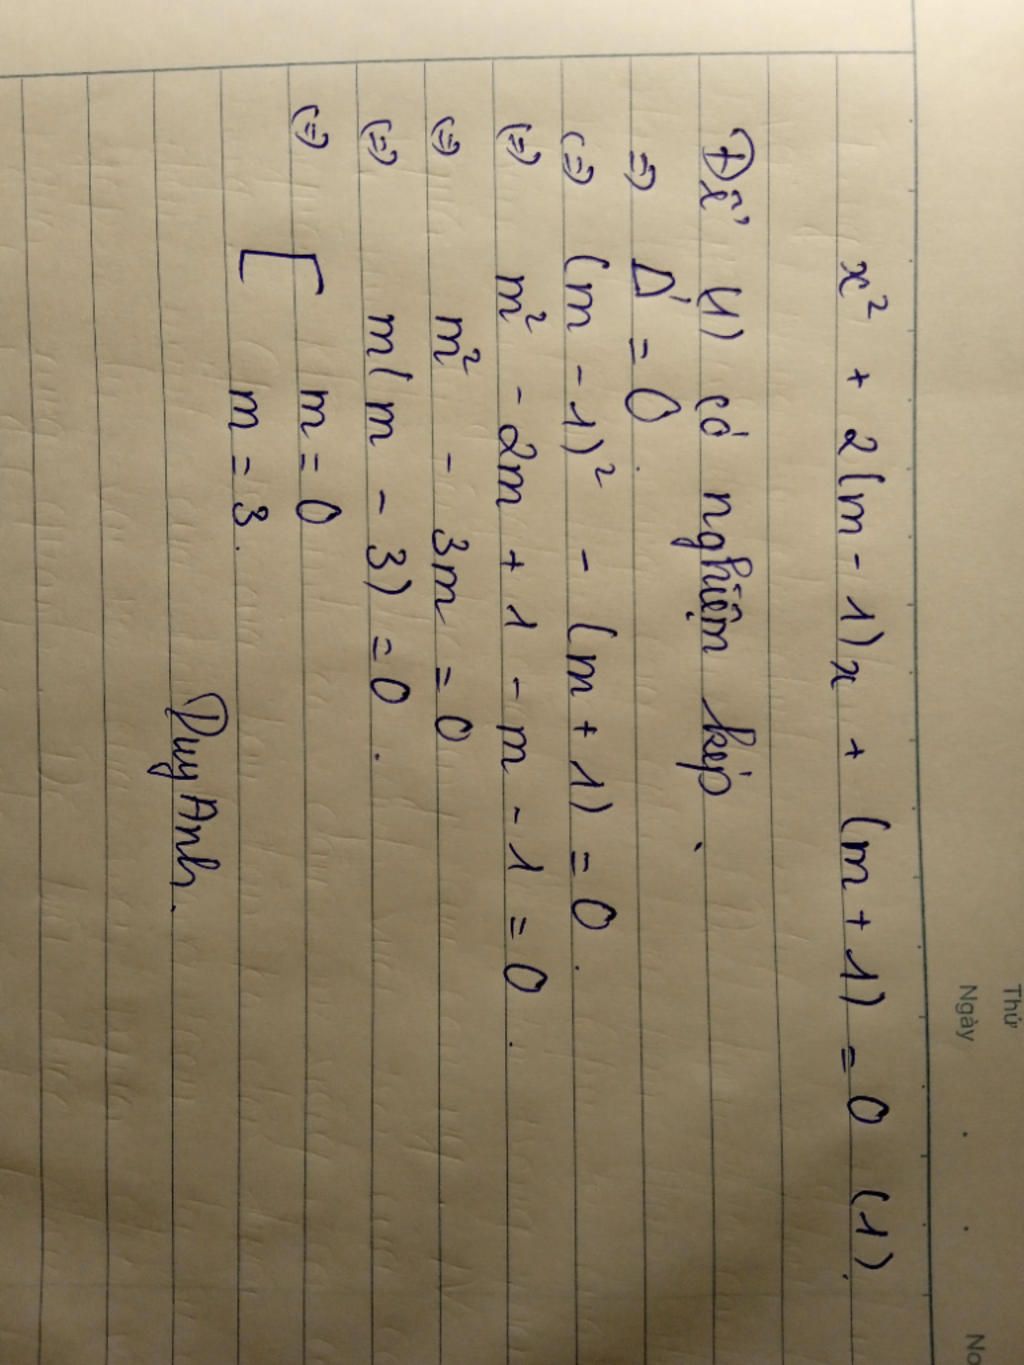 Thứ
Ngày . . No
x² + 2(m - 1)x + (m + 1) = 0 (1).
Để (1) có nghiệm kép.
=> Δ' = 0.
(=) (m - 1)² - (m + 1) = 0.
(=) m² - 2m + 1 - m - 1 = 0.
(=) m² - 3m = 0
(=) m(m - 3) = 0.
(=) [ m = 0
m = 3.
Duy Anh.